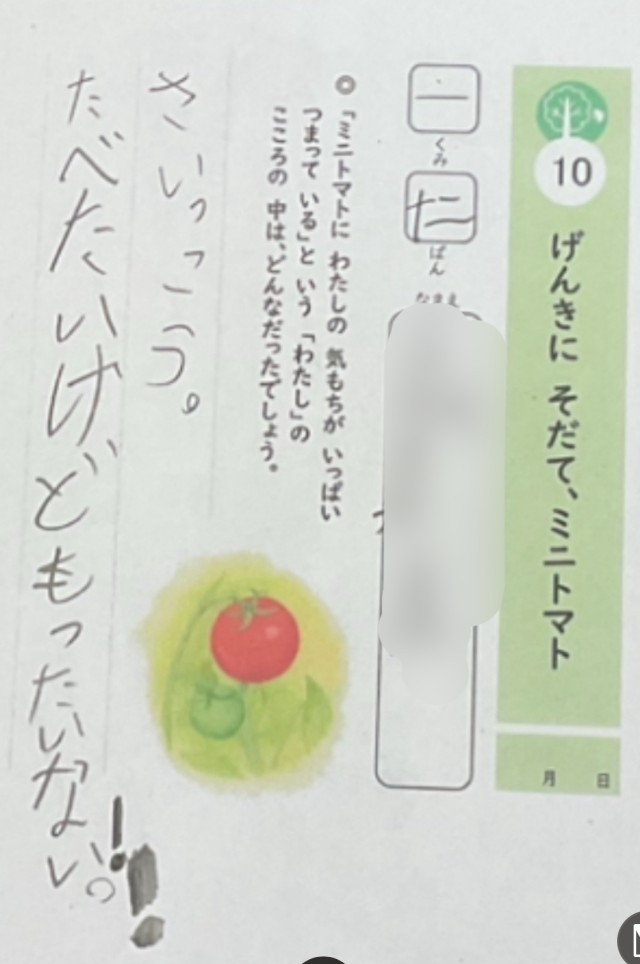 10 げんきに そだて、ミニトマト
月 日
一 くみ
七 ばん
なまえ
◎「ミニトマトに わたしの 気もちが いっぱい
つまって いる」と いう 「わたし」の
こころの 中は、どんなだったでしょう。
さいっこう。
たべたいけど もったいない。!!